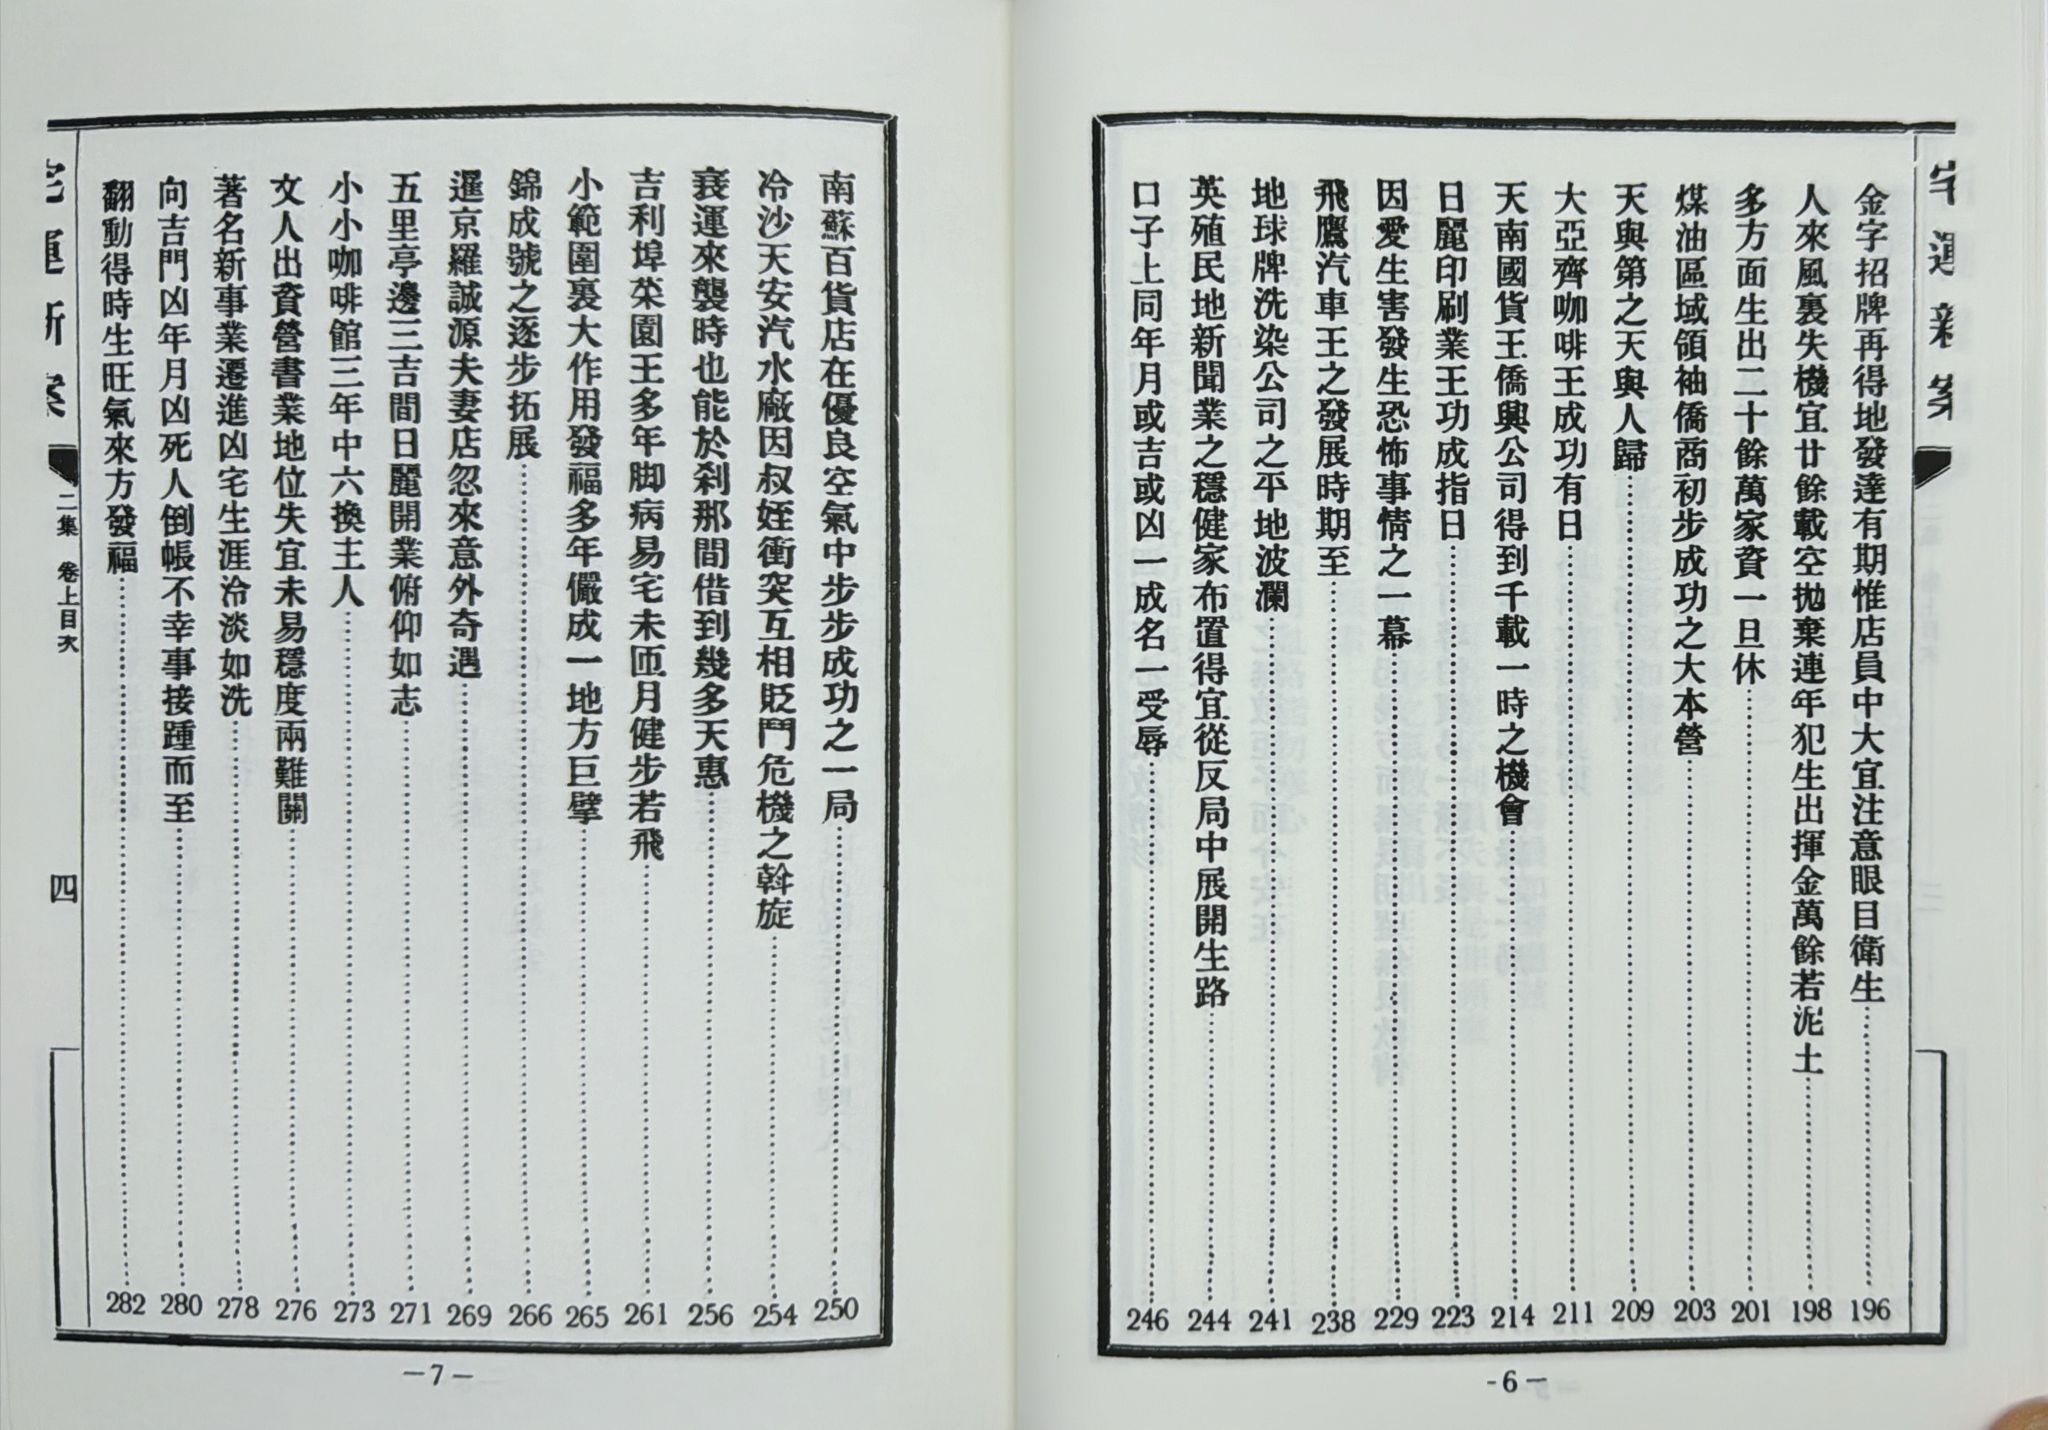 宅運新案
金字招牌再得地發達有期惟店員中大宜注意眼目衛生 196
人來風裏失機宜廿餘載空拋棄連年犯生出揮金萬餘若泥土 198
多方面生出二十餘萬家資一旦休 201
煤油區域領袖僑商初步成功之大本營 203
天與第之天與人歸 209
大亞齊咖啡王成功有日 211
天南國貨王僑興公司得到千載一時之機會 214
日麗印刷業王功成指日 223
因愛生害發生恐怖事情之一幕 229
飛鷹汽車王之發展時期至 238
地球牌洗染公司之平地波瀾 241
英殖民地新聞業之穩健家布置得宜從反局中展開生路 244
口子上同年月或吉或凶一成名一受辱 246
-6-
南蘇百貨店在優良空氣中步步成功之一局 250
冷沙天安汽水廠因叔姪衝突互相貶鬥危機之斡旋 254
衰運來襲時也能於剎那間借到幾多天惠 256
吉利埠茶園王多年脚病易宅未匝月健步若飛 261
小範圍裏大作用發福多年儼成一地方巨擘 265
錦成號之逐步拓展 266
暹京羅誠源夫妻店忽來意外奇遇 269
五里亭邊三吉間日麗開業俯仰如志 271
小小咖啡館三年中六換主人 273
文人出資營書業地位失宜未易穩度兩難關 276
著名新事業遷進凶宅生涯冷淡如洗 278
向吉門凶年月凶死人倒帳不幸事接踵而至 280
翻動得時生旺氣來方發福 282
宅運新案
二集 卷上目次
四
-7-